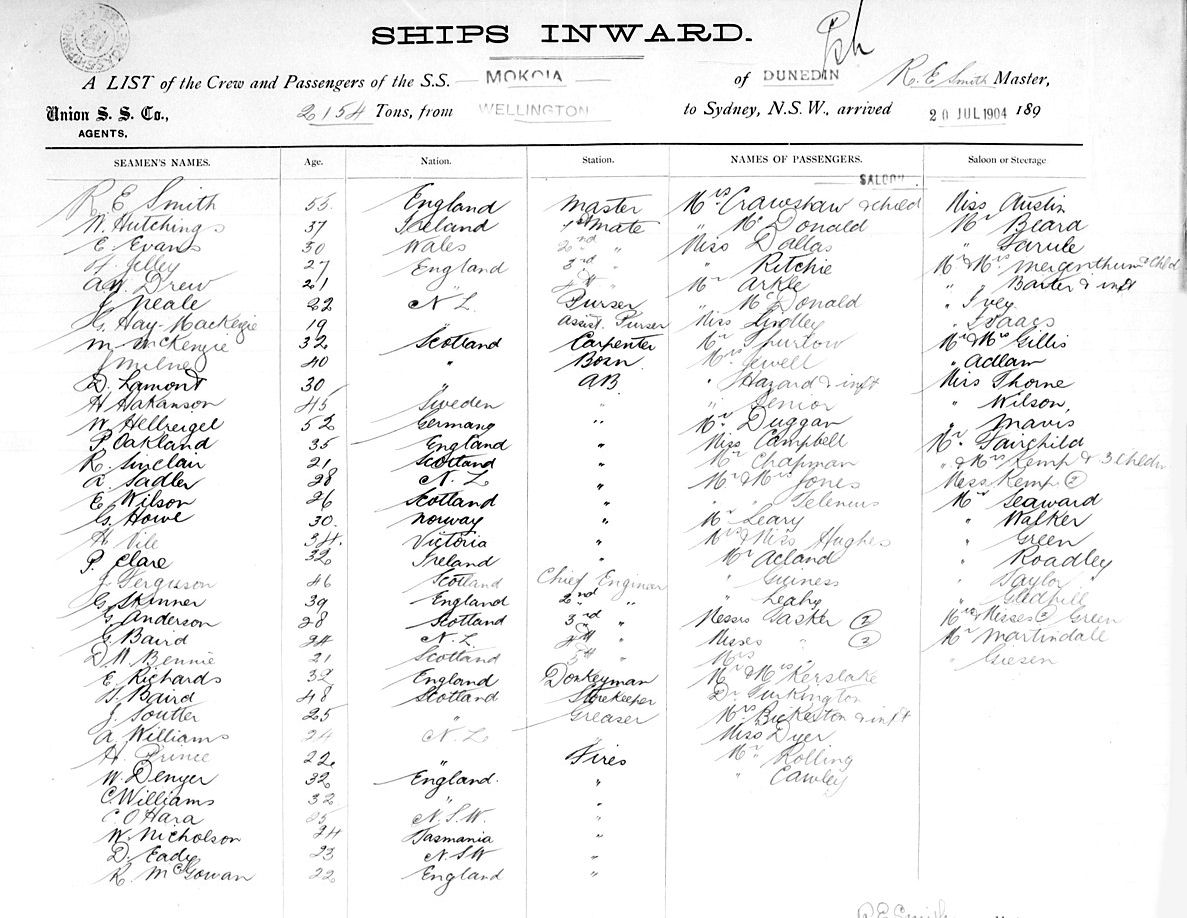 SHIPS INWARD.
A LIST of the Crew and Passengers of the S.S. MOKOIA of DUNEDIN R. E Smith Master,
Union S. S. Co., 2154 Tons, from WELLINGTON to Sydney, N.S.W., arrived 20 JUL 1904 189
AGENTS,
SEAMEN'S NAMES. Age. Nation. Station. NAMES OF PASSENGERS. Saloon or Steerage
SALOON
R E Smith 55. England Master Mrs Crawshaw & child Miss Austin
W. Hutchings 37 Ireland 1st Mate " McDonald Mr Beard
E. Evans 30 Wales 2nd " Miss Dallas "
Jelley 27 England 3rd " " Ritchie Mr & Mrs & Child
Drew 21 " 4th " Mr Arkle " Barter & inft
J. Neale 22 N Z. Purser " McDonald " Ivey
G. Hay-MacKenzie 19 " Assist. Purser Miss Lindley " Isaacs
M. McKenzie 32 Scotland Carpenter Mr Spurtow Mr & Mrs Gillis
J Milne 40 " Bosn Mrs Jewell " Adlam
D. Lamont 30 " AB " Hazard & inft Miss Thorne
H Hakanson 45 Sweden " " Senior " Wilson,
W Hellreigel 52 Germany " Mr Duggan " Mavis
P Oakland 35 England " Miss Campbell Mr Fairchild
R. Sinclair 21 Scotland " Mr Chapman " & Mrs Kemp & 3 Childn
A Sadler 28 N. Z. " Mr & Mrs Jones Misses Kemp 2
E Wilson 26 Scotland " " " Selenius Mr Seaward
G. Howe 30. Norway " Mr Leary " Walker
H Vile 34. Victoria " Mrs & Miss Hughes " Green
P. Clare 32 Ireland " Mr Acland " Roadley
J. Ferguson 46 Scotland Chief Engineer " Guiness " Taylor
G. Skinner 39 England 2nd " " Leahy " Gledhill
G. Anderson 28 Scotland 3rd " Messrs Tasker 2 Mrs & Misses 2 Green
G Baird 24 N. Z. 4th " Misses " 2 Mr Martindale
D. W Bennie 21 Scotland 5th " Mrs " " Giesen
E. Richards 32 England Donkeyman Mr & Mrs Kerslake
Baird 48 Scotland Storekeeper Dr Turkington
J. Soutter 25 " Greaser Mrs Bickerton & inft
A. Williams 24 N. Z " Miss Dyer
H. Prince 22. " Fires Mr Rolling
W. Denyer 32 England. " " Cawley
C. Williams 32 " "
C. O'Hara 25 N. S. W. "
W. Nicholson 24 Tasmania "
D. Eady 23 N. S W "
R. McGowan 22 England "
R E Smith